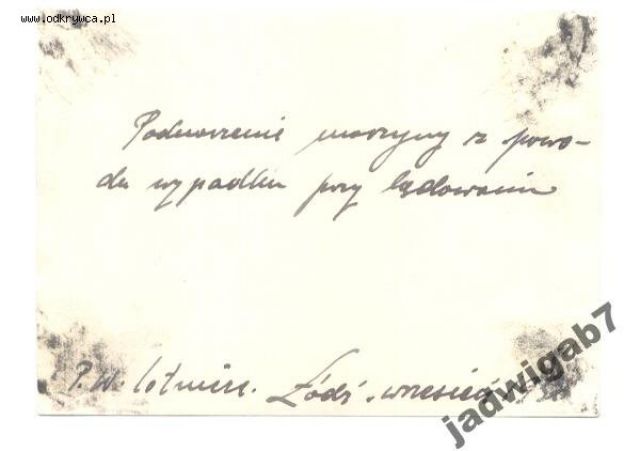 www.odkrywca.pl
Podnoszenie maszyny z powo-
du wypadku przy lądowaniu
P.W. lotnicze. Łódź. wrzesień
jadwigab7